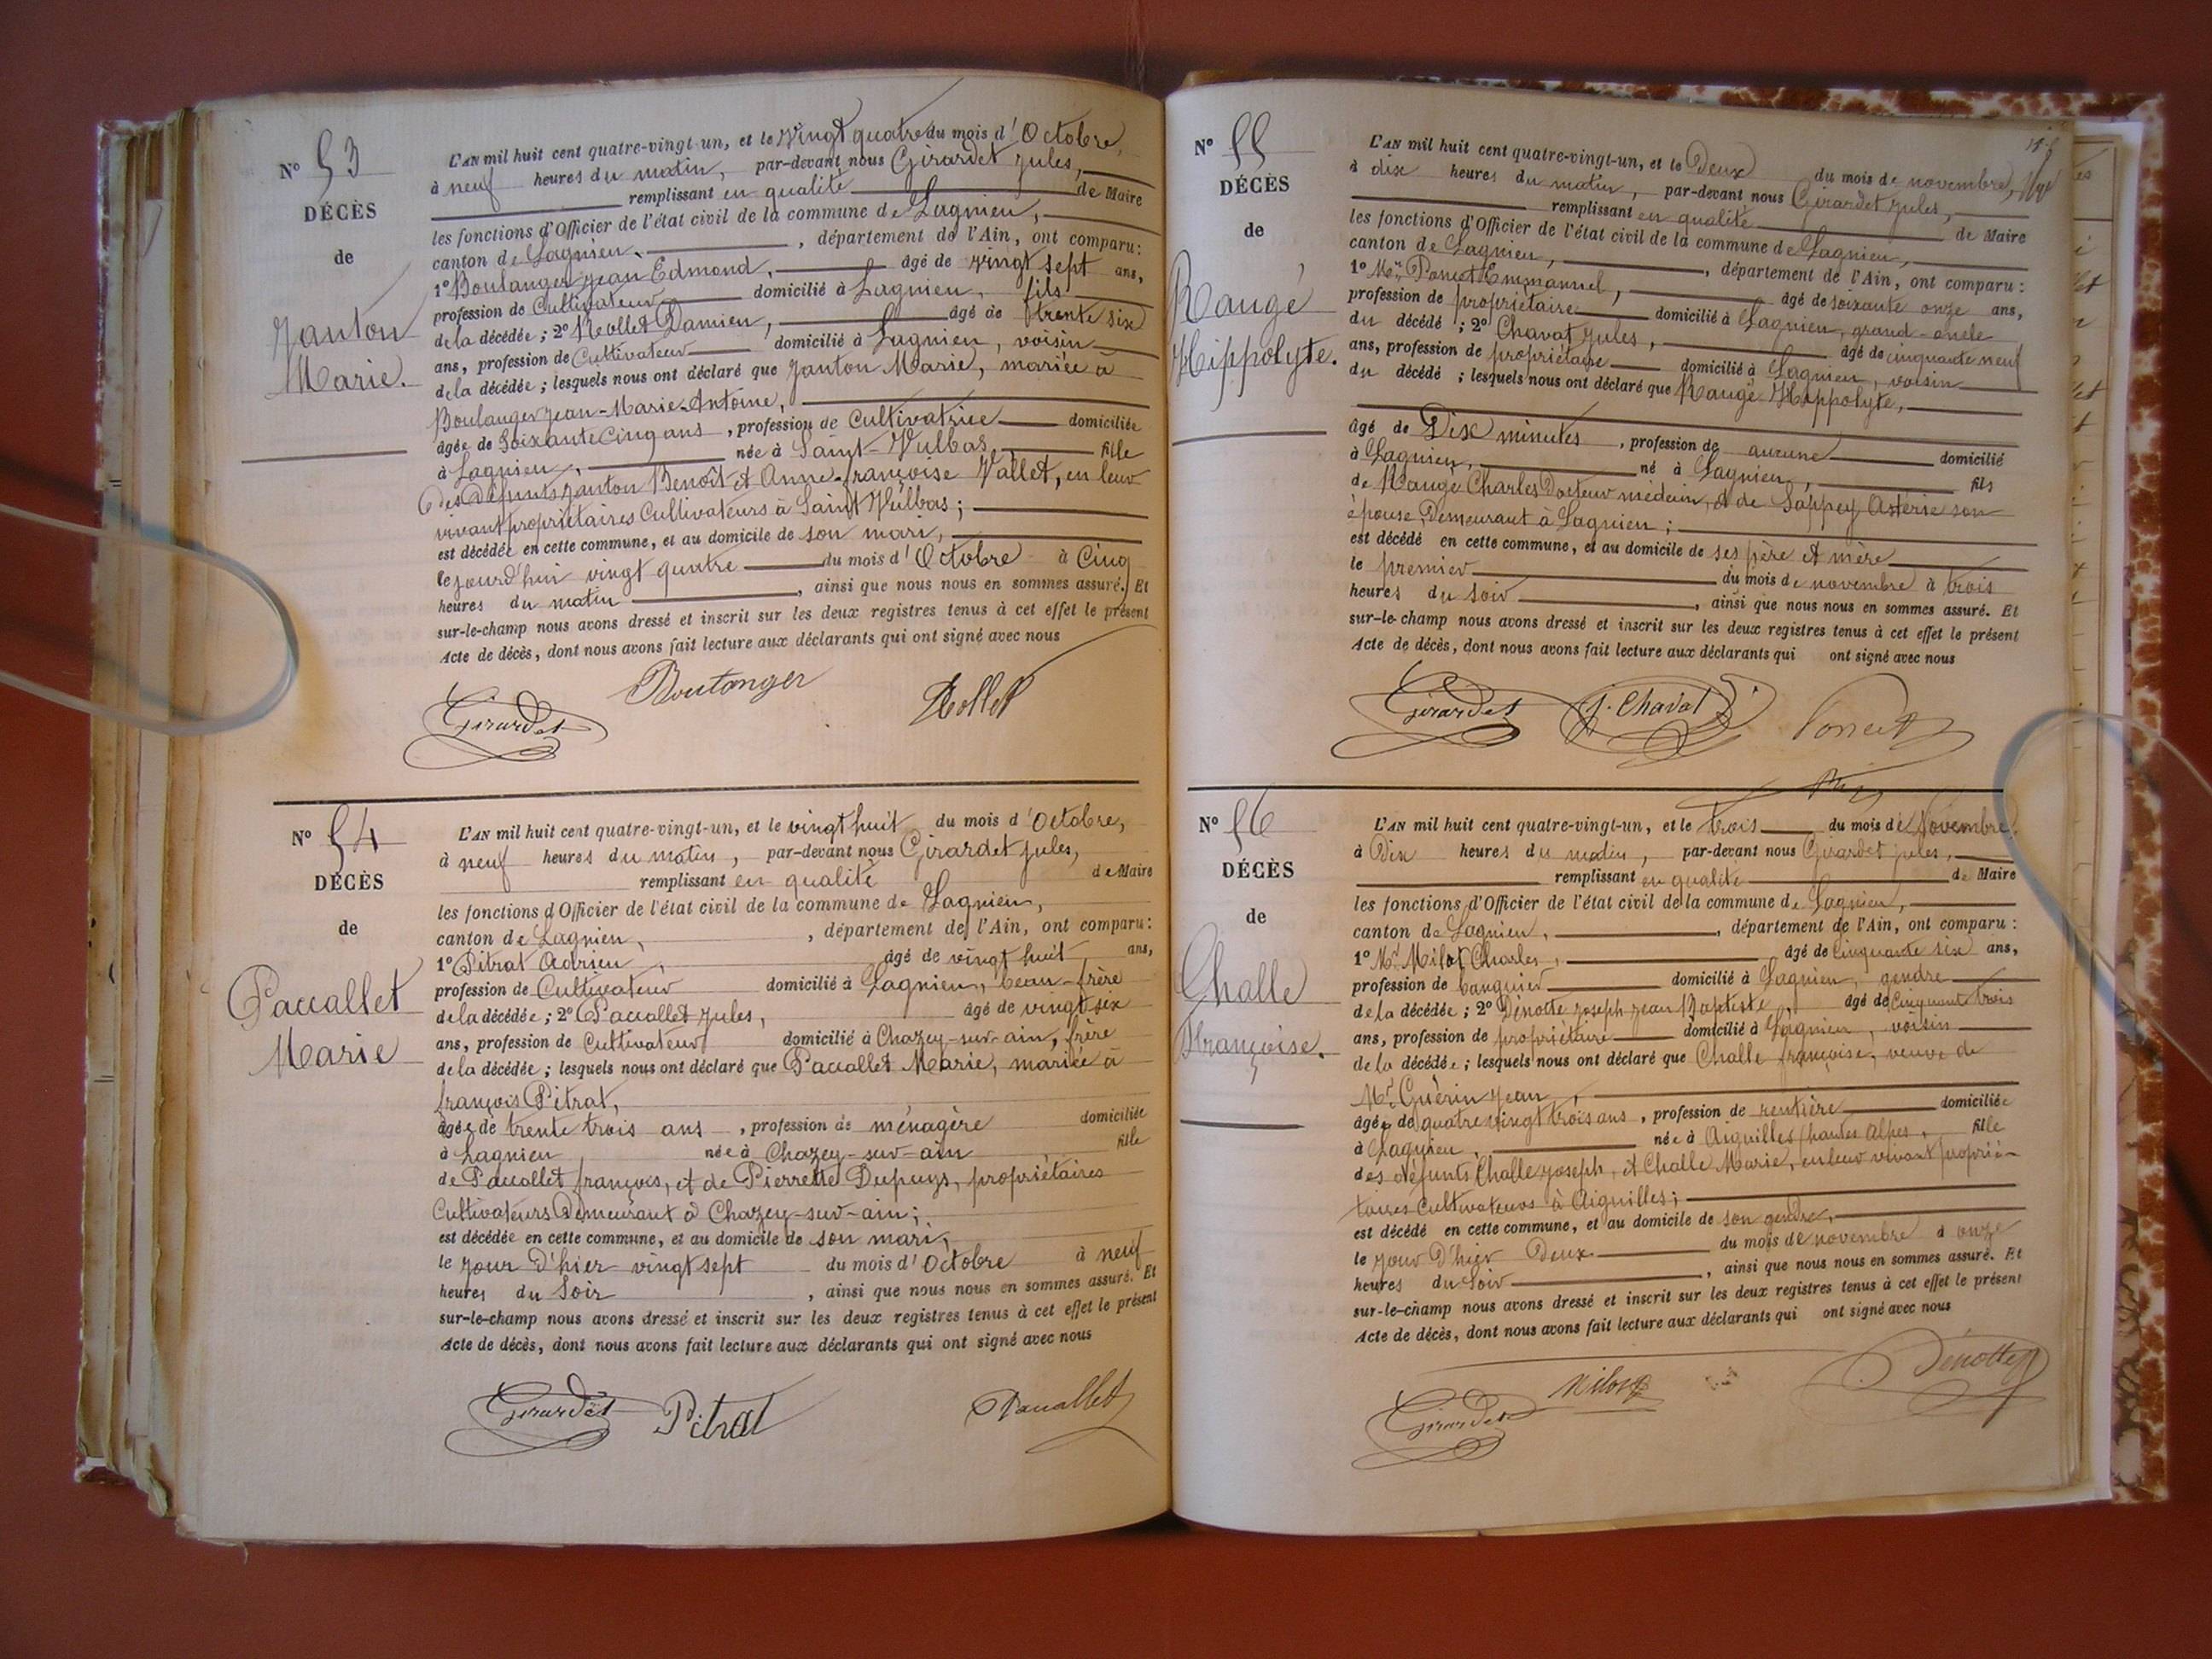 N° 53
DÉCÈS
de
Janton
Marie.
L'AN mil huit cent quatre-vingt-un, et le Vingt quatre du mois d'Octobre,
à neuf heures du matin, par-devant nous Girardet Jules,
remplissant en qualité de Maire
les fonctions d'Officier de l'état civil de la commune de Lagnieu,
canton de Lagnieu, département de l'Ain, ont comparu:
1° Boulanger Jean Edmond, âgé de vingt sept ans,
profession de Cultivateur domicilié à Lagnieu, fils
de la décédée; 2° Rollet Damien, âgé de trente six
ans, profession de Cultivateur domicilié à Lagnieu, voisin
de la décédée; lesquels nous ont déclaré que Janton Marie, mariée à
Boulanger Jean-Marie-Antoine,
âgée de Soixante Cinq ans, profession de Cultivatrice domiciliée
à Lagnieu, née à Saint-Vulbas, fille
Des Défunts Janton Benoît et Anne-françoise Vallet, en leur
vivant propriétaires Cultivateurs à Saint Vulbas;
est décédée en cette commune, et au domicile de son mari,
le jourd'hui vingt quatre du mois d'Octobre à Cinq
heures du matin, ainsi que nous nous en sommes assuré. Et
sur-le-champ nous avons dressé et inscrit sur les deux registres tenus à cet effet le présent
Acte de décès, dont nous avons fait lecture aux déclarants qui ont signé avec nous
Girardet Boulanger Rollet
N° 54
DÉCÈS
de
Paccallet
Marie
L'AN mil huit cent quatre-vingt-un, et le vingt huit du mois d'Octobre,
à neuf heures du matin, par-devant nous Girardet Jules,
remplissant en qualité de Maire
les fonctions d'Officier de l'état civil de la commune de Lagnieu,
canton de Lagnieu, département de l'Ain, ont comparu:
1° Pitrat Adrien, âgé de vingt huit ans,
profession de Cultivateur domicilié à Lagnieu, beau-frère
de la décédée; 2° Paccallet Jules, âgé de vingt six
ans, profession de Cultivateur domicilié à Chazey-sur-ain, frère
de la décédée; lesquels nous ont déclaré que Paccallet Marie, mariée à
françois Pitrat,
âgée de trente trois ans, profession de ménagère domiciliée
à Lagnieu née à Chazey-sur-ain fille
de Paccallet françois, et de Pierrette Dupuys, propriétaires
Cultivateurs Demeurant à Chazey-sur-ain;
est décédée en cette commune, et au domicile de son mari,
le jour D'hier vingt sept du mois d'Octobre à neuf
heures du Soir, ainsi que nous nous en sommes assuré. Et
sur-le-champ nous avons dressé et inscrit sur les deux registres tenus à cet effet le présent
Acte de décès, dont nous avons fait lecture aux déclarants qui ont signé avec nous
Girardet Pitrat Paccallet
N° 55
DÉCÈS
de
Raugé
Hippolyte.
L'AN mil huit cent quatre-vingt-un, et le Deux du mois de novembre,
à dix heures du matin, par-devant nous Girardet Jules,
remplissant en qualité de Maire
les fonctions d'Officier de l'état civil de la commune de Lagnieu,
canton de Lagnieu, département de l'Ain, ont comparu:
1° Mr. Poncet Emmanuel, âgé de soixante onze ans,
profession de propriétaire domicilié à Lagnieu, grand-oncle
du décédé; 2° Chavat Jules, âgé de cinquante neuf
ans, profession de propriétaire domicilié à Lagnieu, voisin
du décédé; lesquels nous ont déclaré que Raugé Hippolyte,
âgé de Dix minutes, profession de aucune domicilié
à Lagnieu, né à Lagnieu, fils
de Raugé Charles Docteur médecin, et de Sappey Astérie son
épouse, Demeurant à Lagnieu;
est décédé en cette commune, et au domicile de ses père et mère
le premier du mois de novembre à trois
heures du soir, ainsi que nous nous en sommes assuré. Et
sur-le-champ nous avons dressé et inscrit sur les deux registres tenus à cet effet le présent
Acte de décès, dont nous avons fait lecture aux déclarants qui ont signé avec nous
Girardet J. Chavat Poncet
N° 56
DÉCÈS
de
Challe
Françoise.
L'AN mil huit cent quatre-vingt-un, et le trois du mois de Novembre,
à Dix heures du matin, par-devant nous Girardet Jules,
remplissant en qualité de Maire
les fonctions d'Officier de l'état civil de la commune de Lagnieu,
canton de Lagnieu, département de l'Ain, ont comparu:
1° Mr. Milot Charles, âgé de Cinquante six ans,
profession de banquier domicilié à Lagnieu, gendre
de la décédée; 2° Dénotte Joseph Jean Baptiste, âgé de Cinquante trois
ans, profession de propriétaire domicilié à Lagnieu, voisin
de la décédée; lesquels nous ont déclaré que Challe françoise, veuve de
Mr. Guérin Jean,
âgée de quatre vingt trois ans, profession de rentière domiciliée
à Lagnieu, née à Aiguilles (hautes Alpes, fille
des défunts Challe Joseph, et Challe Marie, en leur vivant proprié-
taires Cultivateurs à Aiguilles;
est décédé en cette commune, et au domicile de son gendre,
le jour D'hier Deux du mois de novembre à onze
heures du Soir, ainsi que nous nous en sommes assuré. Et
sur-le-champ nous avons dressé et inscrit sur les deux registres tenus à cet effet le présent
Acte de décès, dont nous avons fait lecture aux déclarants qui ont signé avec nous
Girardet Milot Dénotte